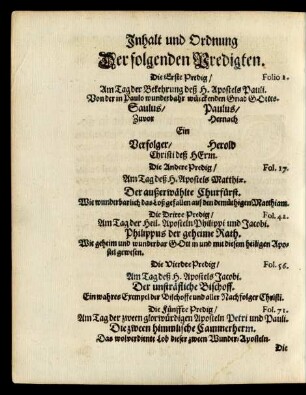 Inhalt und Ordnung
Der folgenden Predigten.
Die Erste Predig/ Folio 1.
Am Tag der Bekehrung deß H. Apostels Pauli.
Von der in Paulo wunderbahr würckenden Gnad Gottes.
Saulus/ Paulus/
Zuvor Hernach
Ein
Verfolger/ Herold
Christi deß HErrn.
Die Andere Predig/ Fol. 17.
Am Tag deß H. Apostels Matthiæ.
Der außerwählte Churfürst.
Wie wunderbarlich das Loß gefallen auf den demüthigen Matthiam.
Die Dritte Predig/ Fol. 42.
Am Tag der Heil. Aposteln Philippi und Jacobi.
Philippus der geheime Rath.
Wie geheim und wunderbar GOtt in und mit diesem heiligen Apostel gewesen.
Die Vierdte Predig/ Fol. 56.
Am Tag deß H. Apostels Jacobi.
Der unsträfliche Bischoff.
Ein wahres Exempel der Bischoffe und aller Nachfolger Christi.
Die Fünffte Predig/ Fol. 71.
Am Tag der zween glorwürdigen Aposteln Petri und Pauli.
Die zween himmlische Cammerherrn.
Das wolverdiente Lob dieser zween Wunder-Aposteln.
Die